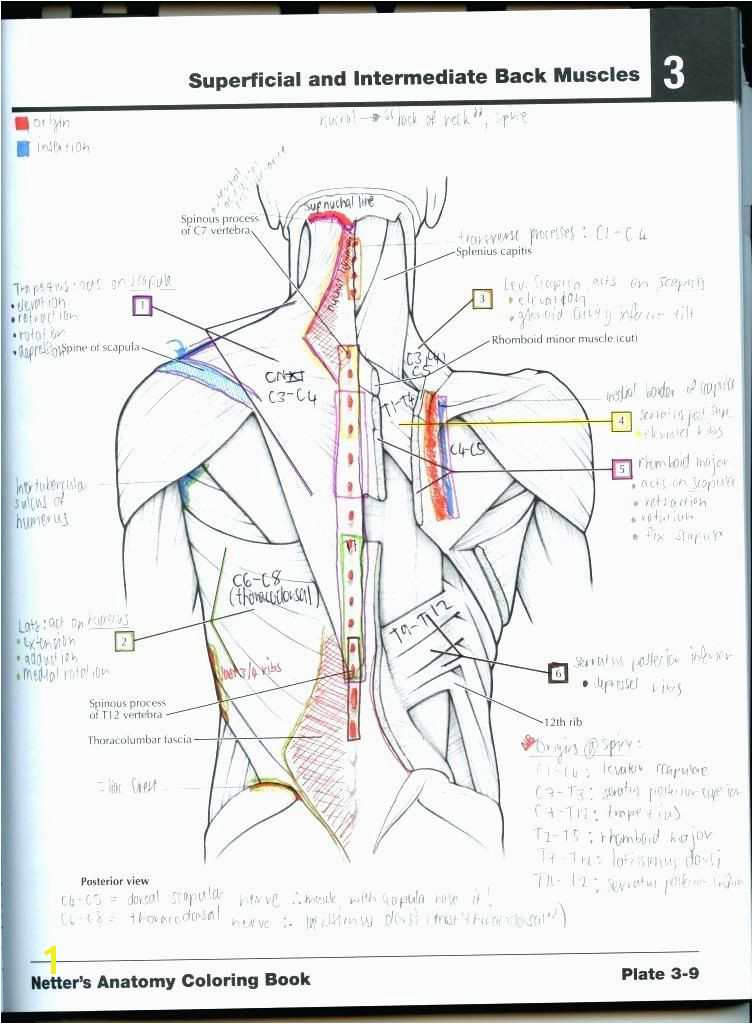 Superficial and Intermediate Back Muscles
3
origin
insertion
nuchal → "back of neck", spine
sup nuchal line
Spinous process
of C7 vertebra
nuchal ligament
transverse processes: C1-C4
Splenius capitis
Trapezius: acts on scapula
• elevation
• retraction
• rotation
• depression
1
Spine of scapula
Lev. Scapula acts on scapula
• elevation
• glenoid cavity inferior tilt
3
Rhomboid minor muscle (cut)
CN XI
C3-C4
C3, C4,
C5
T1-T4
C4-C5
medial border of scapula
4
serratus post. sup.
• elevates ribs
5
rhomboid major
• acts on scapula
• retraction
• rotation
• fix scapula
Intertubercular
sulcus of
humerus
T7
C6-C8
(thoracodorsal)
T9-T12
Lats: act on humerus
• extension
• adduction
• medial rotation
2
3/4 ribs
6
serratus posterior inferior
• depresses ribs
Spinous process
of T12 vertebra
12th rib
Thoracolumbar fascia
Iliac Crest
NB
Origins @ spine:
C1-C4: levator scapulae
C7-T3: serratus posterior superior
C7-T12: trapezius
T2-T5: rhomboid major
T7-T12: latissimus dorsi
T11-L2: serratus posterior
Posterior view
C4-C5 = dorsal scapular nerve ∴ muscle with scapula have it!
C6-C8 = thoracodorsal nerve ∴ latissimus dorsi
1
Netter's Anatomy Coloring Book
Plate 3-9